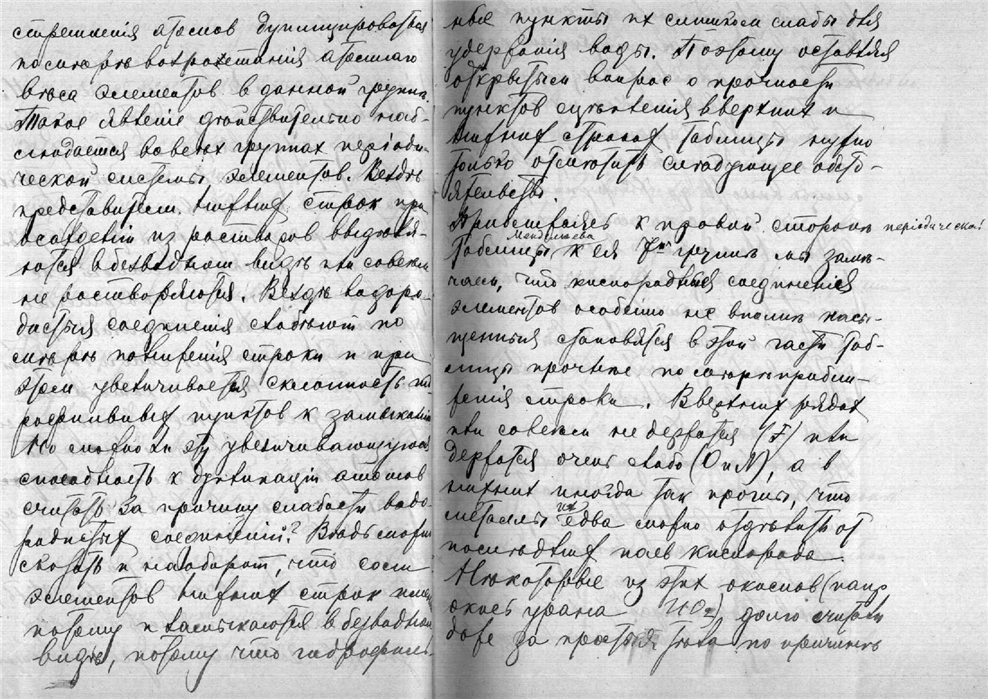 стремленія атомовъ дуплицироваться
по мѣрѣ возростанія атомнаго
вѣса элементовъ в данной группѣ.
Такое явленіе дѣйствительно наб-
людается во всѣх группах періоди-
ческой системы элементов. Вездѣ
представители нижних строк при
осаждении из растваров выдѣля-
ются в безводном видѣ или совсем
не растворяются. Вездѣ водоро-
дистыя соединенія слабѣют по
мѣрѣ пониженія строки и при
этом увеличивается склонность
пунктов к замыканію
Но можно ли эту увеличивающуюся
способность к атомов
считать за причину слабости водо-
родистых соединеній? Вѣдь можно
сказать и наоборот, что соли
элементов нижних строк
потому и замыкаются в безводном
видѣ, потому что гидрофиль-
ные пункты их слишком слабы для
удержанія воды. Поэтому оставляя
открытым вопрос о прочности
пунктов сцѣпленія в верхних и
нижних строках таблицы нужно
только отмѣтить слѣдующее обсто-
ятельство.
Присматриваясь к правой сторонѣ періодической
таблицы Менделѣева к ея 7ой группѣ мы замѣ-
чаем, что кислородныя соединенія
элементов особенно не вполнѣ насы-
щенныя становятся в этой части таб-
лицы прочнѣе по мѣрѣ прибли-
женія строки. В верхних рядах
или совсем не держатся (F) или
держатся очень слабо (O и N), а в
нижних иногда так прочны, что
металлы их едва можно отдѣлить от
послѣдних паев кислорода.
Нѣкоторые из этих окисловъ (напр
окись урана UO2) долго считали
даже за простыя тѣла по причинѣ